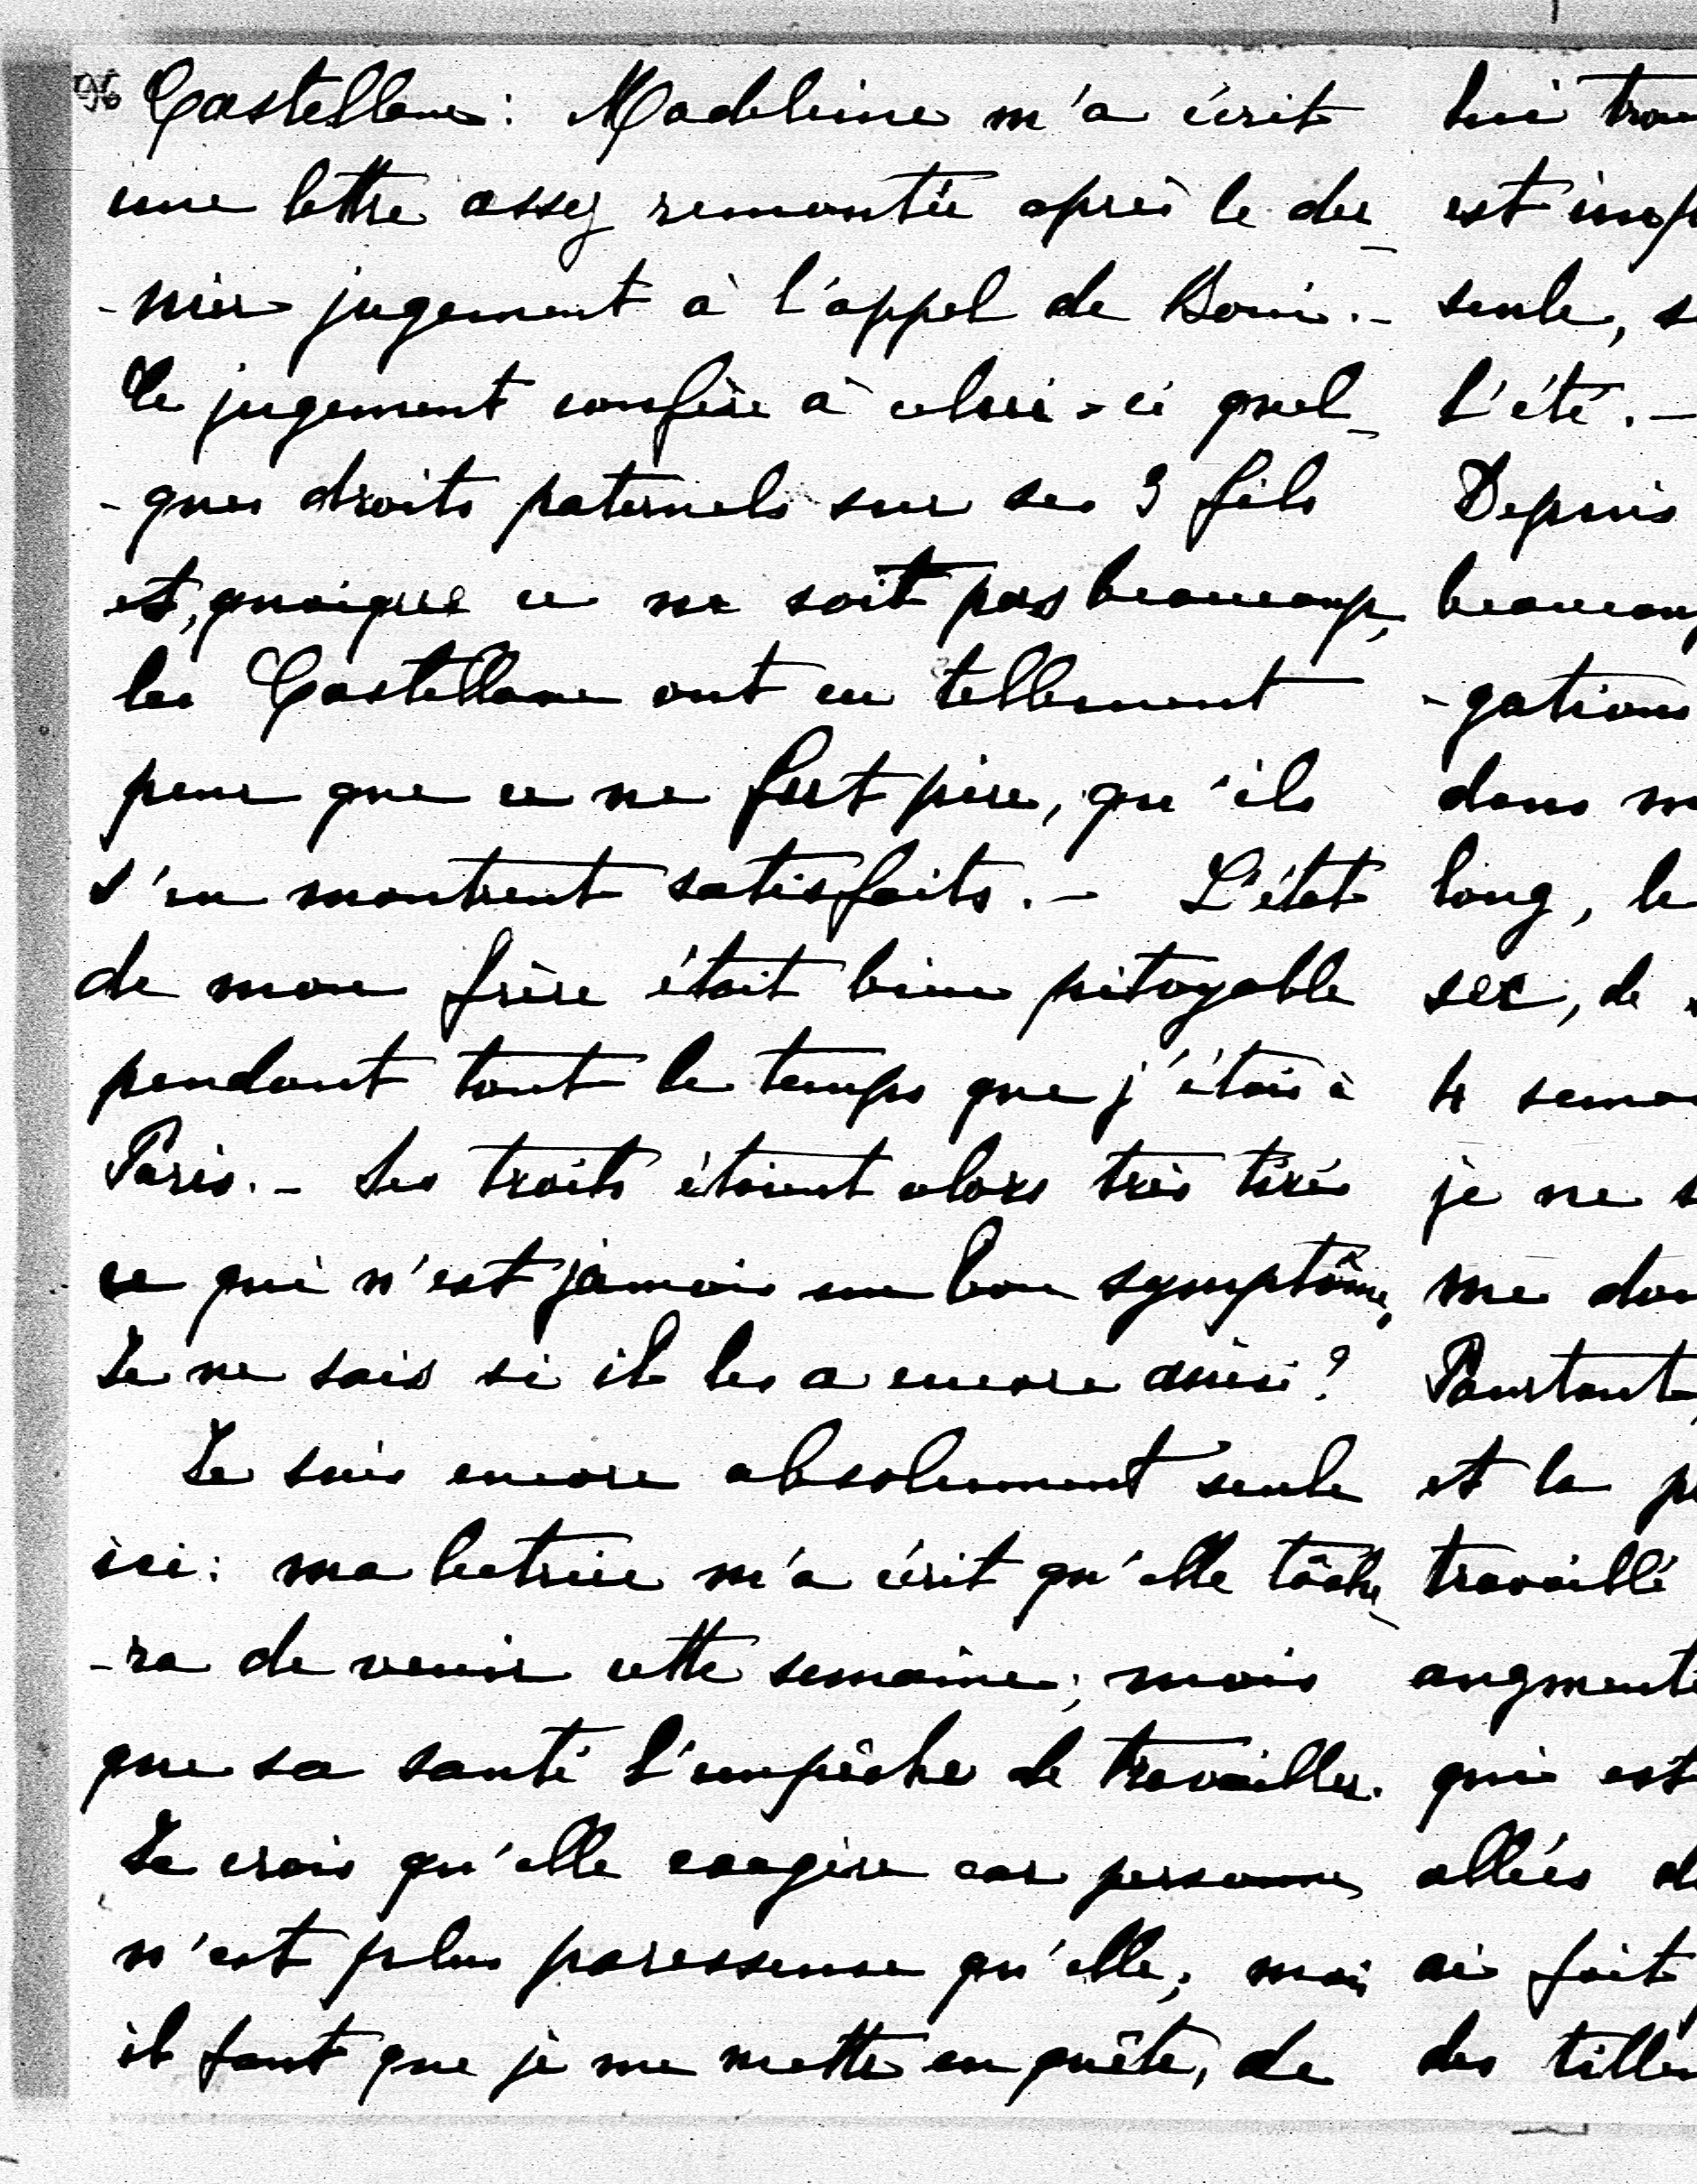 96
Castellane: Madeleine m'a écrit
une lettre assez remontée après le der
-nier jugement à l'appel de Boni.-
Le jugement confère à celui-ci quel-
-ques droits paternels sur ses 3 fils
et, quoique ce ne soit pas beaucoup,
les Castellane ont eu tellement
peur que ce ne fut pire, qu'ils
s'en montrent satisfaits.- L'état
de mon frère était bien pitoyable
pendant tout le temps que j'étais à
Paris.- Ses traits étaient alors très tirés
ce qui n'est jamais un bon symptôme,
Je ne sais si il les a encore ainsi?
Je suis encore absolument seule
ici: ma lectrice m'a écrit qu'elle tâche-
-ra de venir cette semaine; mais
que sa santé l'empêche de travailler.
Je crois qu'elle exagère car personne
n'est plus paresseuse qu'elle; mais
il faut que je me mette en quête, de
lui trou
est imp
seule, s
l'été.-
Depuis
beaucoup
-gations
dans m
long, le
sec, de
4 semai
je ne s
me don
Pourtant,
et la p
travaillé
augmenté
qui est
allées d
ai fait
des tilleu